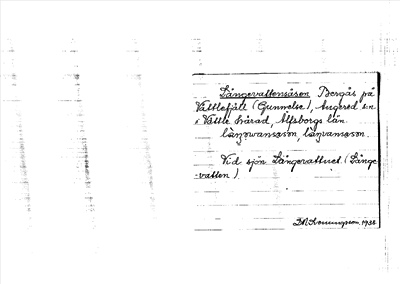 Långevattensåsen Bergås på
Vättlefjäll (Gunnilse), Angered sn.
i Vättle härad, Älfsborgs län.
Vid sjön Långevattnet (Långe-
-vatten).
1938